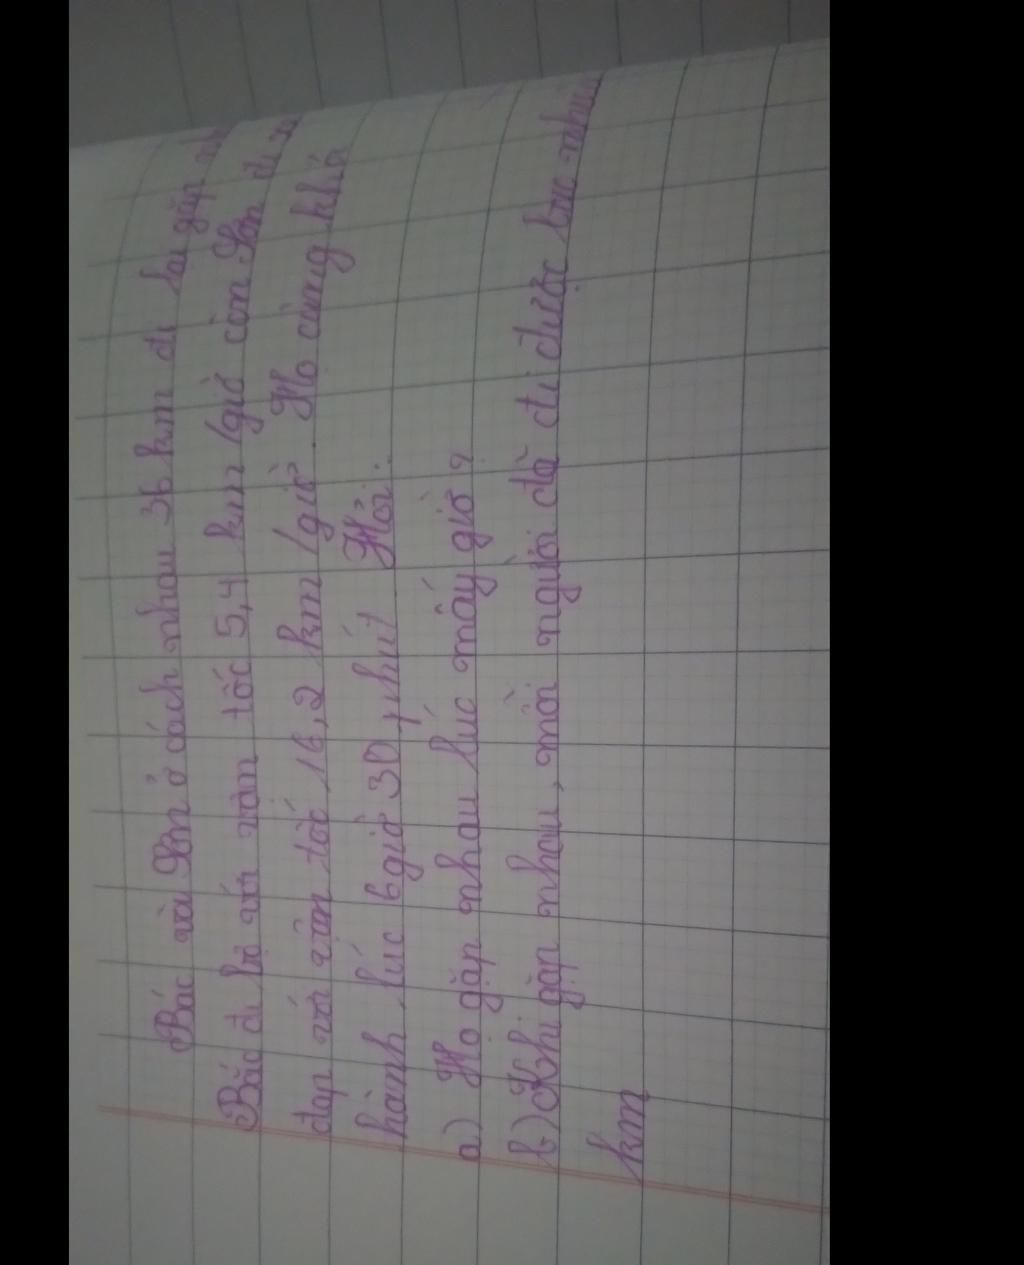 Bác và Sơn ở cách nhau 36 km đi lại gặp nh
Bác đi bộ với vận tốc 5,4 km/giờ còn Sơn đi x
đạp với vận tốc 16,2 km/giờ. Họ cùng khở
hành lúc 6 giờ 30 phút Hỏi:
a) Họ gặp nhau lúc mấy giờ?
b) Khi gặp nhau, mỗi người đã đi được bao nhiê
km